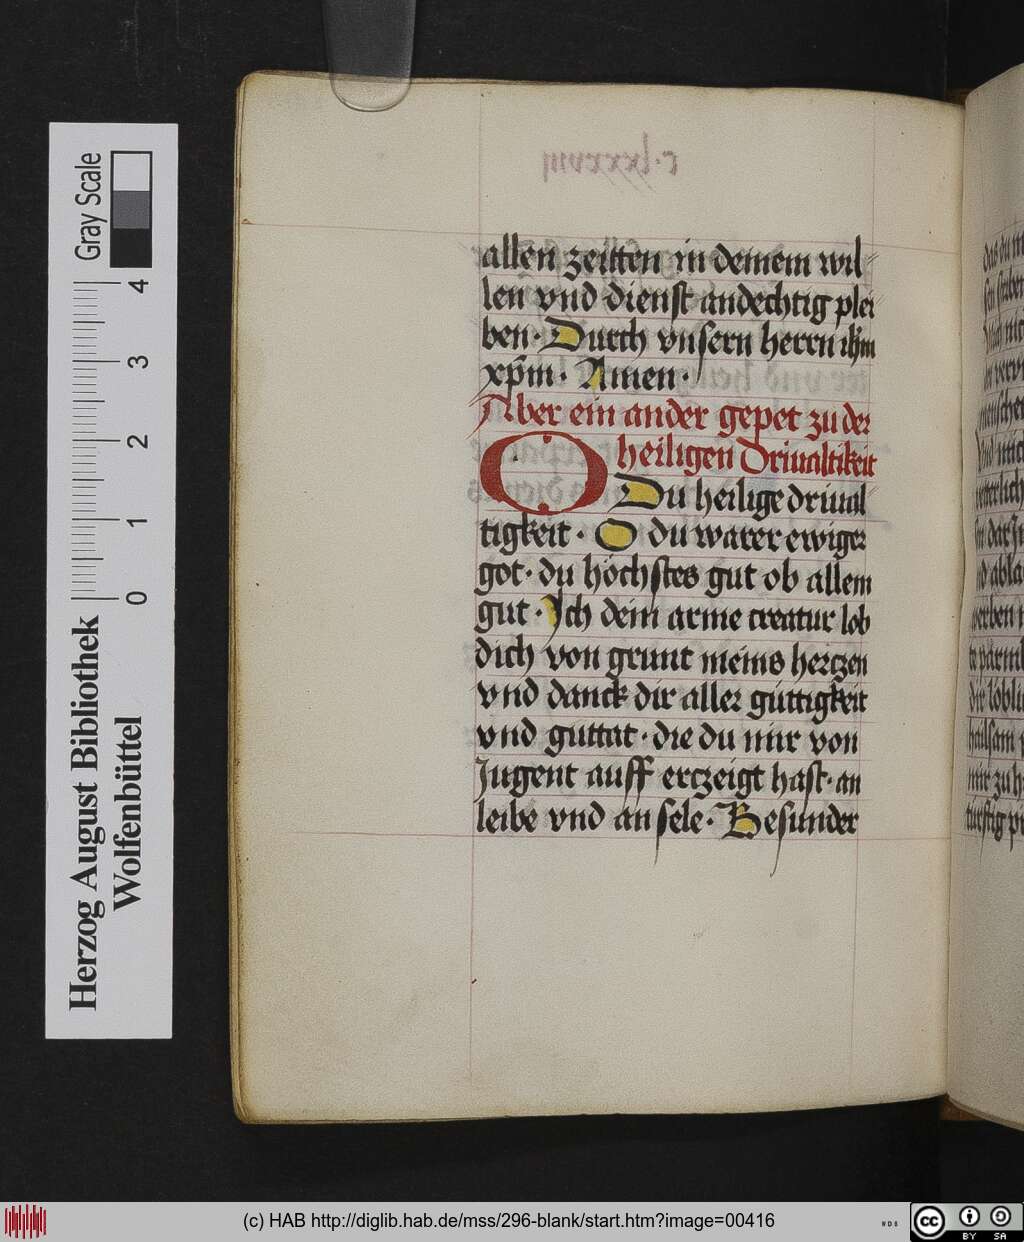 allen zeitten in deinem wil
len vnd dienst andechtig plei
ben · Durch vnsern herrn ih̄m
xp̄m · Amen ·
Aber ein ander gepet zu der
heiligen driualtikeit
O Du heilige driual
tigkeit · O du warer ewiger
got · du höchstes gut ob allem
gut · Ich dein arme creatur lob
dich von grunt meins hertzen
vnd danck dir aller guttigkeit
vnd guttat · die du mir von
Jugent auff erczeigt hast · an
leibe vnd an sele · Besunder
Herzog August Bibliothek
Wolfenbüttel
0 1 2 3 4
Gray Scale
(c) HAB http://diglib.hab.de/mss/296-blank/start.htm?image=00416
WDB
cc BY SA